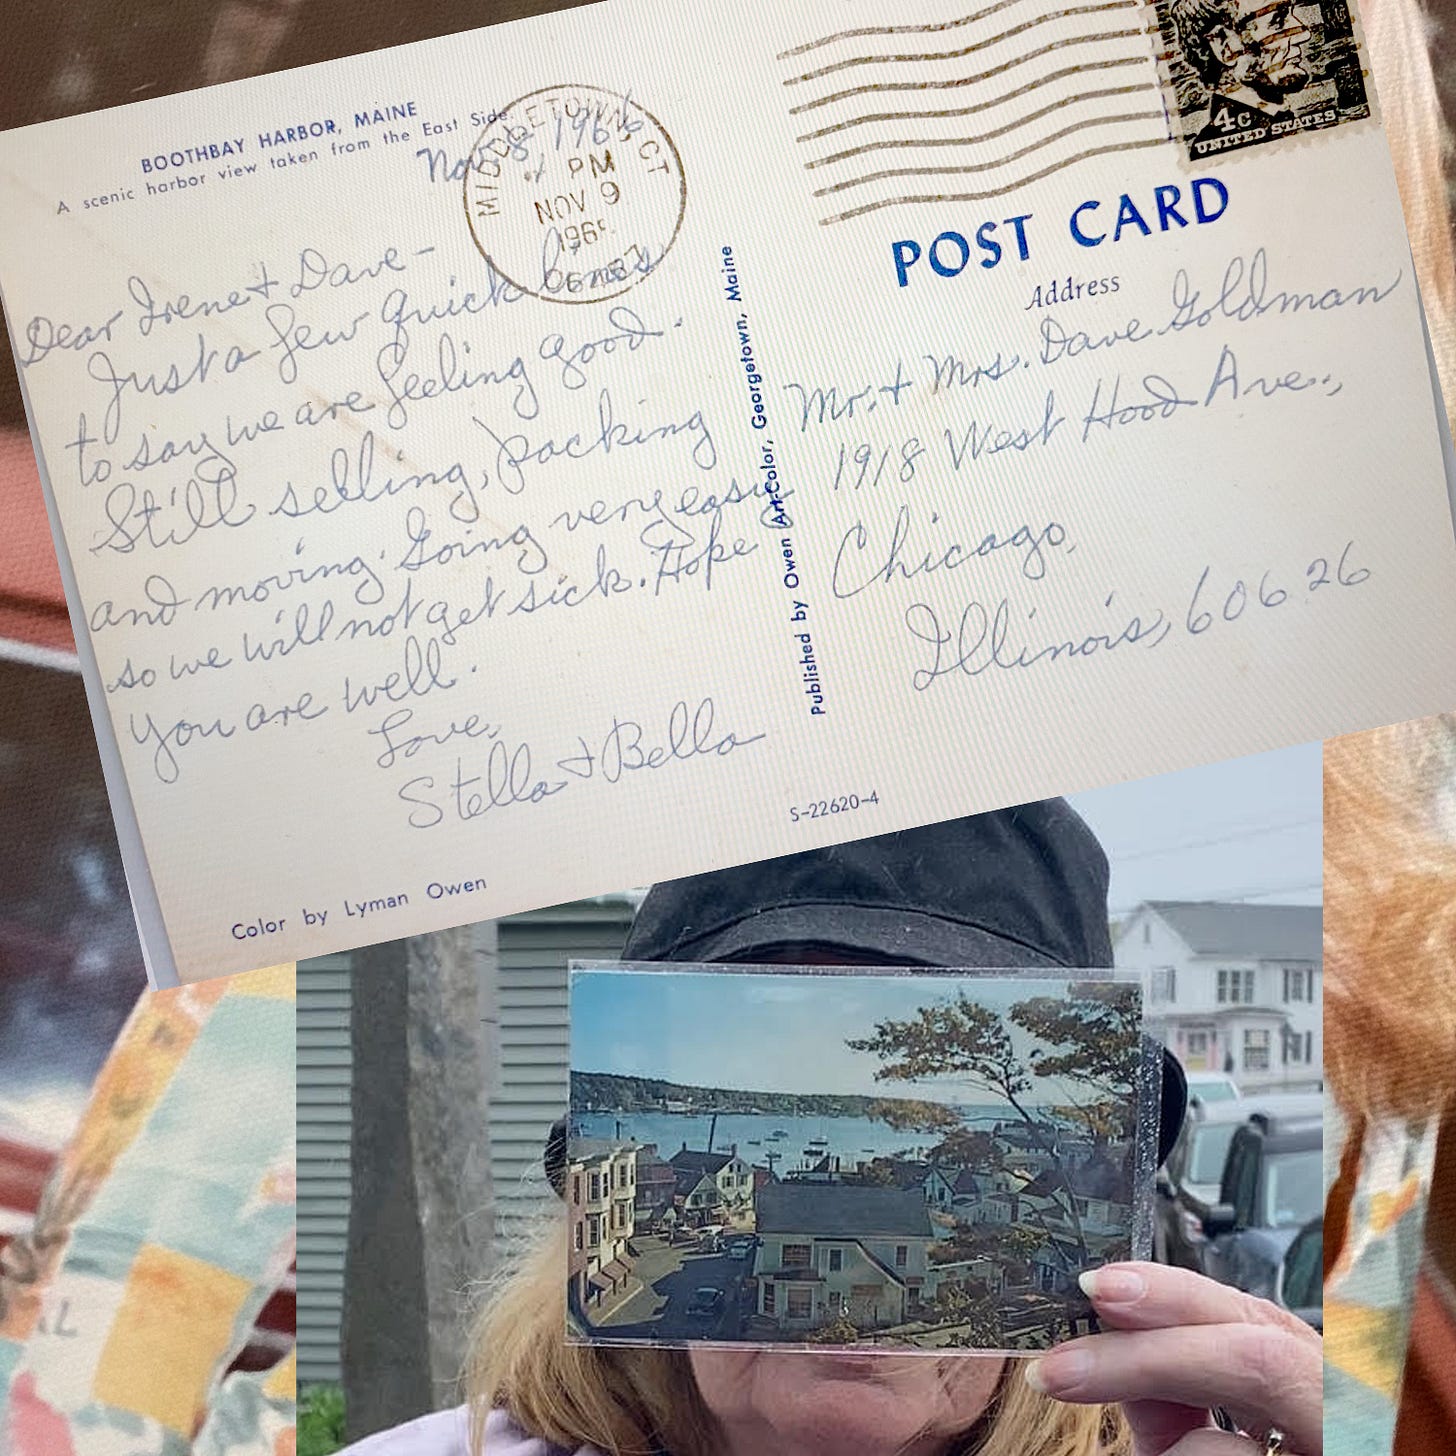 BOOTHBAY HARBOR, MAINE
A scenic harbor view taken from the East Side
Nov. 8, 1966
MIDDLETOWN, CT
PM
NOV 9
4c
UNITED STATES
Dear Irene + Dave -
Just a few quick lines
to say we are feeling good.
Still selling, packing
and moving. Going very easy
so we will not get sick. Hope
you are well.
Love,
Stella + Bella
Color by Lyman Owen
Published by Owen Art-Color, Georgetown, Maine
POST CARD
Address
Mr. + Mrs. Dave Goldman
1918 West Hood Ave.,
Chicago,
Illinois, 60626
S-22620-4